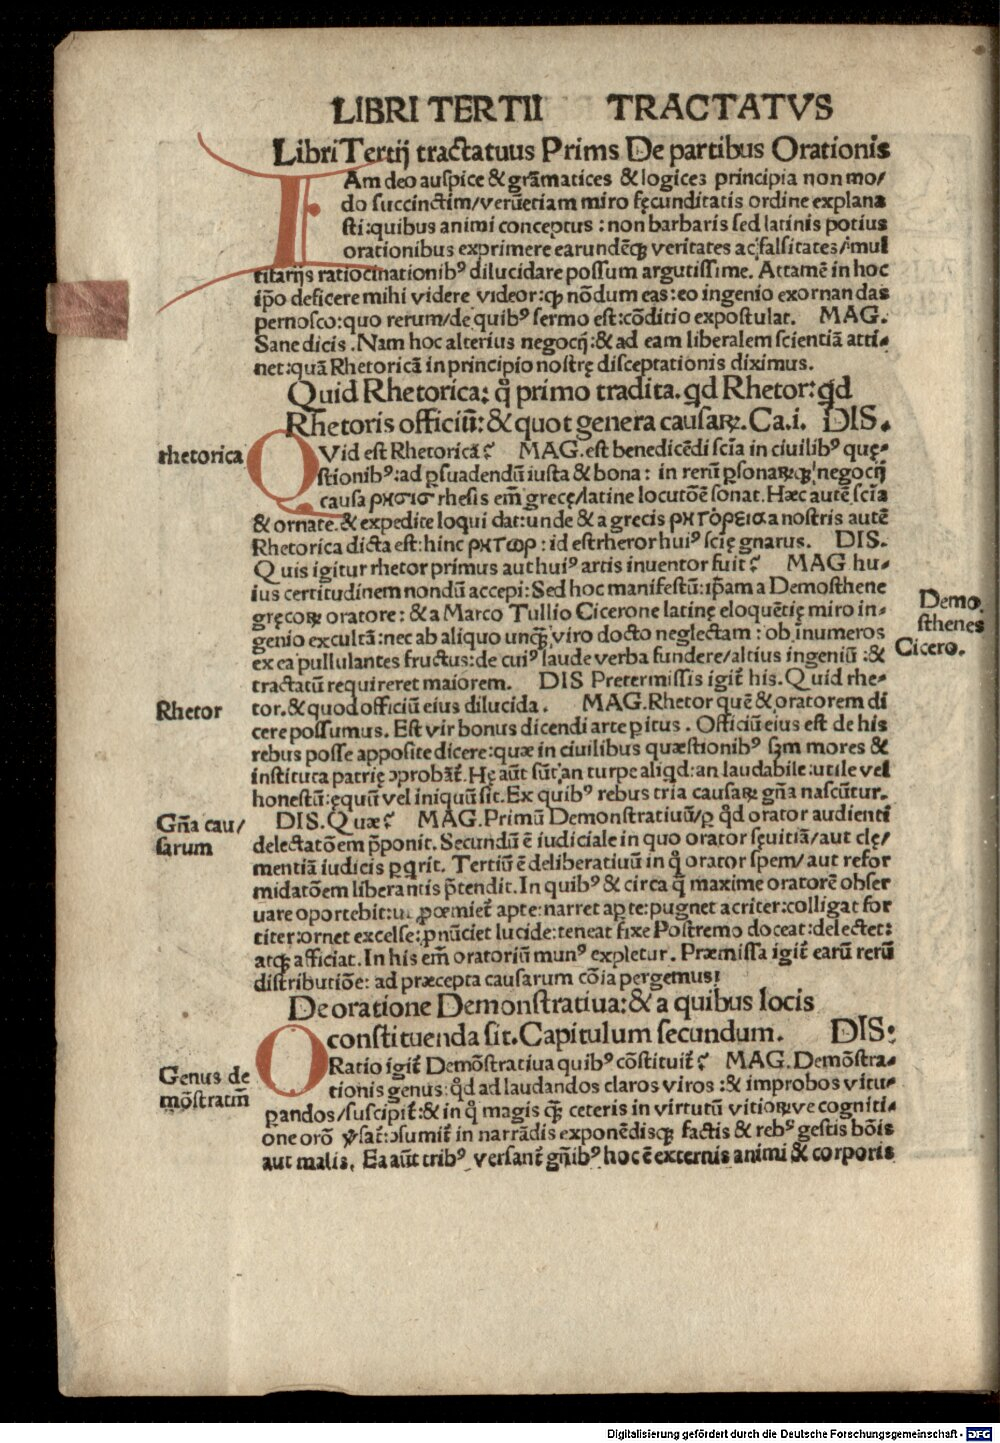 LIBRI TERTII TRACTATVS
Libri Tertij tractatuus Prims De partibus Orationis
IAm deo auſpice & grãmatices & logices principia non mo/
do ſuccinctim/verũetiam miro fęcunditatis ordine explana
ſti:quibus animi conceptus : non barbaris ſed latinis potius
orationibus exprimere earundẽqꝫ veritates ac falſitates/mul
titarijs ratiocinationibꝰ dilucidare poſſum argutiſſime. Attamẽ in hoc
ip̃o deficere mihi videre videor:qꝫ nõdum eas:eo ingenio exornandas
pernoſco:quo rerum/de quibꝰ ſermo eſt:cõditio expoſtulat. MAG.
Sane dicis .Nam hoc alterius negocij:& ad eam liberalem ſcientiã atti-
net:quã Rhetoricã in principio noſtrę diſceptationis diximus.
Quid Rhetorica: q̊ primo tradita. qd Rhetor: qd
Rhetoris officiũ: & quot genera cauſaꝝ. Ca.i. DIS.
rhetorica
QVid eſt Rhetoricã? MAG.eſt benedicẽdi ſcĩa in ciuilibꝰ quę-
ſtionibꝰ:ad ꝑſuadendũ iuſta & bona: in rerũ ꝑſonaꝝqꝫ negocij
cauſa ρησισ rheſis em̃ grecę/latine locutõẽ ſonat. Hæc autẽ ſcĩa
& ornate. & expedite loqui dat:unde & a grecis ρητόρεισα a noſtris autẽ
Rhetorica dicta eſt: hinc ρητωρ : id eſt rheror huiꝰ ſcię gnarus. DIS.
Quis igitur rhetor primus aut huiꝰ artis inuentor fuit? MAG hu-
ius certitudinem nondũ accepi:Sed hoc manifeſtũ:ip̃am a Demoſthene
gręcoꝝ oratore: & a Marco Tullio Cicerone latinę eloquẽtię miro in-
genio excultã:nec ab aliquo unqꝫ viro docto neglectam : ob inumeros
Demo
ſthenes
Cicero.
ex ea pullulantes fructus:de cuiꝰ laude verba fundere/altius ingeniũ :&
tractatũ requireret maiorem. DIS Pretermiſſis igit̃ his. Quid rhe-
Rhetor
tor. & quod officiũ eius dilucida. MAG.Rhetor quẽ & oratorem di
cere poſſumus. Eſt vir bonus dicendi arte ꝑitus . Officiũ eius eſt de his
rebus poſſe appoſite dicere:quæ in ciuilibus quæſtionibꝰ ſm̃ mores &
inſtituta patrię ꝓbãt̃. Hę aũt ſũt an turpe aliqd:an laudabile:utile vel
honeſtũ:ęquũ vel iniquũ ſit. Ex quibꝰ rebus tria cauſaꝝ gñа naſcũtur.
Gña cau/
ſarum
DIS. Quæ? MAG.Primũ Demonſtratiuũ/ꝑ q̊d orator audienti
delectatõem p̃ponit. Secundũ ẽ iudiciale in quo orator ſęuitiã/aut clę/
mentiã iudicis ꝑqrit. Tertiũ ẽ deliberatiuũ in q̊ orator ſpem/aut refor
midatõem liberantis p̃tendit. In quibꝰ & circa q̃ maxime oratorẽ obſer
uare oportebit:ut ꝓœmiet̃ apte:narret apte:pugnet acriter:colligat for
titer:ornet excelſe:ꝓnũciet lucide:teneat fixe Poſtremo doceat:delectet:
atqꝫ afficiat. In his em̃ oratoriũ munꝰ expletur. Præmiſſa igit̃ earũ rerũ
diſtributiõe: ad præcepta cauſarum cõia pergemus:
De oratione Demonſtratiua: & a quibus locis
conſtituenda ſit. Capitulum ſecundum. DIS:
ORatio igit̃ Demõſtratiua quibꝰ cõſtituit̃? MAG.Demõſtra-
Genus de
mõſtratiũ
tionis genus: q̊d ad laudandos claros viros :& improbos vitu-
ꝑandos/ſuſcipit̃:& in q̊ magis qꝫ ceteris in virtutũ vitioꝝve cogniti-
one orõ ꝟſat̃:ↄſumit̃ in narrãdis exponẽdisqꝫ factis & rebꝰ geſtis bõis
aut malis. Ea aũt tribꝰ verſant̃ gñibꝰ hoc ẽ externis animi & corporis
Digitalisierung gefördert durch die Deutsche Forschungsgemeinschaft - DFG